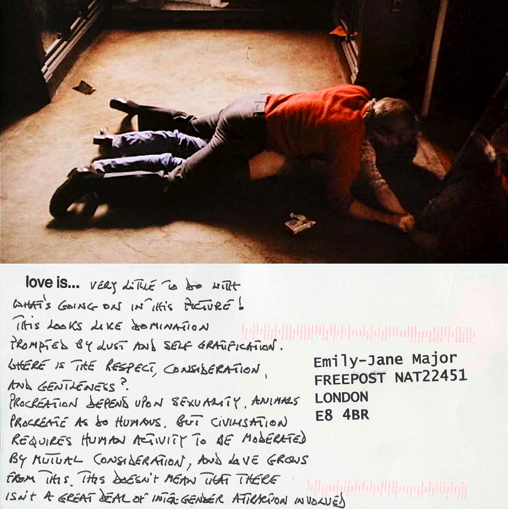 love is... VERY LITTLE TO DO WITH
WHAT'S GOING ON IN THIS PICTURE!
THIS LOOKS LIKE DOMINATION
PROMPTED BY LUST AND SELF GRATIFICATION.
WHERE IS THE RESPECT, CONSIDERATION,
AND GENTLENESS?
PROCREATION DEPEND UPON SEXUALITY. ANIMALS
PROCREATE AS DO HUMANS. BUT CIVILISATION
REQUIRES HUMAN ACTIVITY TO BE MODERATED
BY MUTUAL CONSIDERATION, AND LOVE GROWS
FROM THIS. THIS DOESN'T MEAN THAT THERE
ISN'T A GREAT DEAL OF INTER-GENDER ATTRACTION INVOLVED
Emily-Jane Major
FREEPOST NAT22451
LONDON
E8 4BR